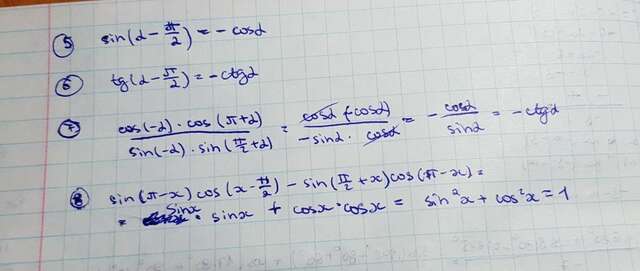 5 sin(α - π/2) = - cosα
6 tg(α - π/2) = - ctgα
7 cos(-α) · cos(π+α) / sin(-α) · sin(π/2 + α) = cosα (-cosα) / -sinα · cosα = - cosα / sinα = - ctgα
8 sin(π-x) cos(x - π/2) - sin(π/2 + x) cos(π - x) =
= sinx · sinx + cosx · cosx = sin²x + cos²x = 1